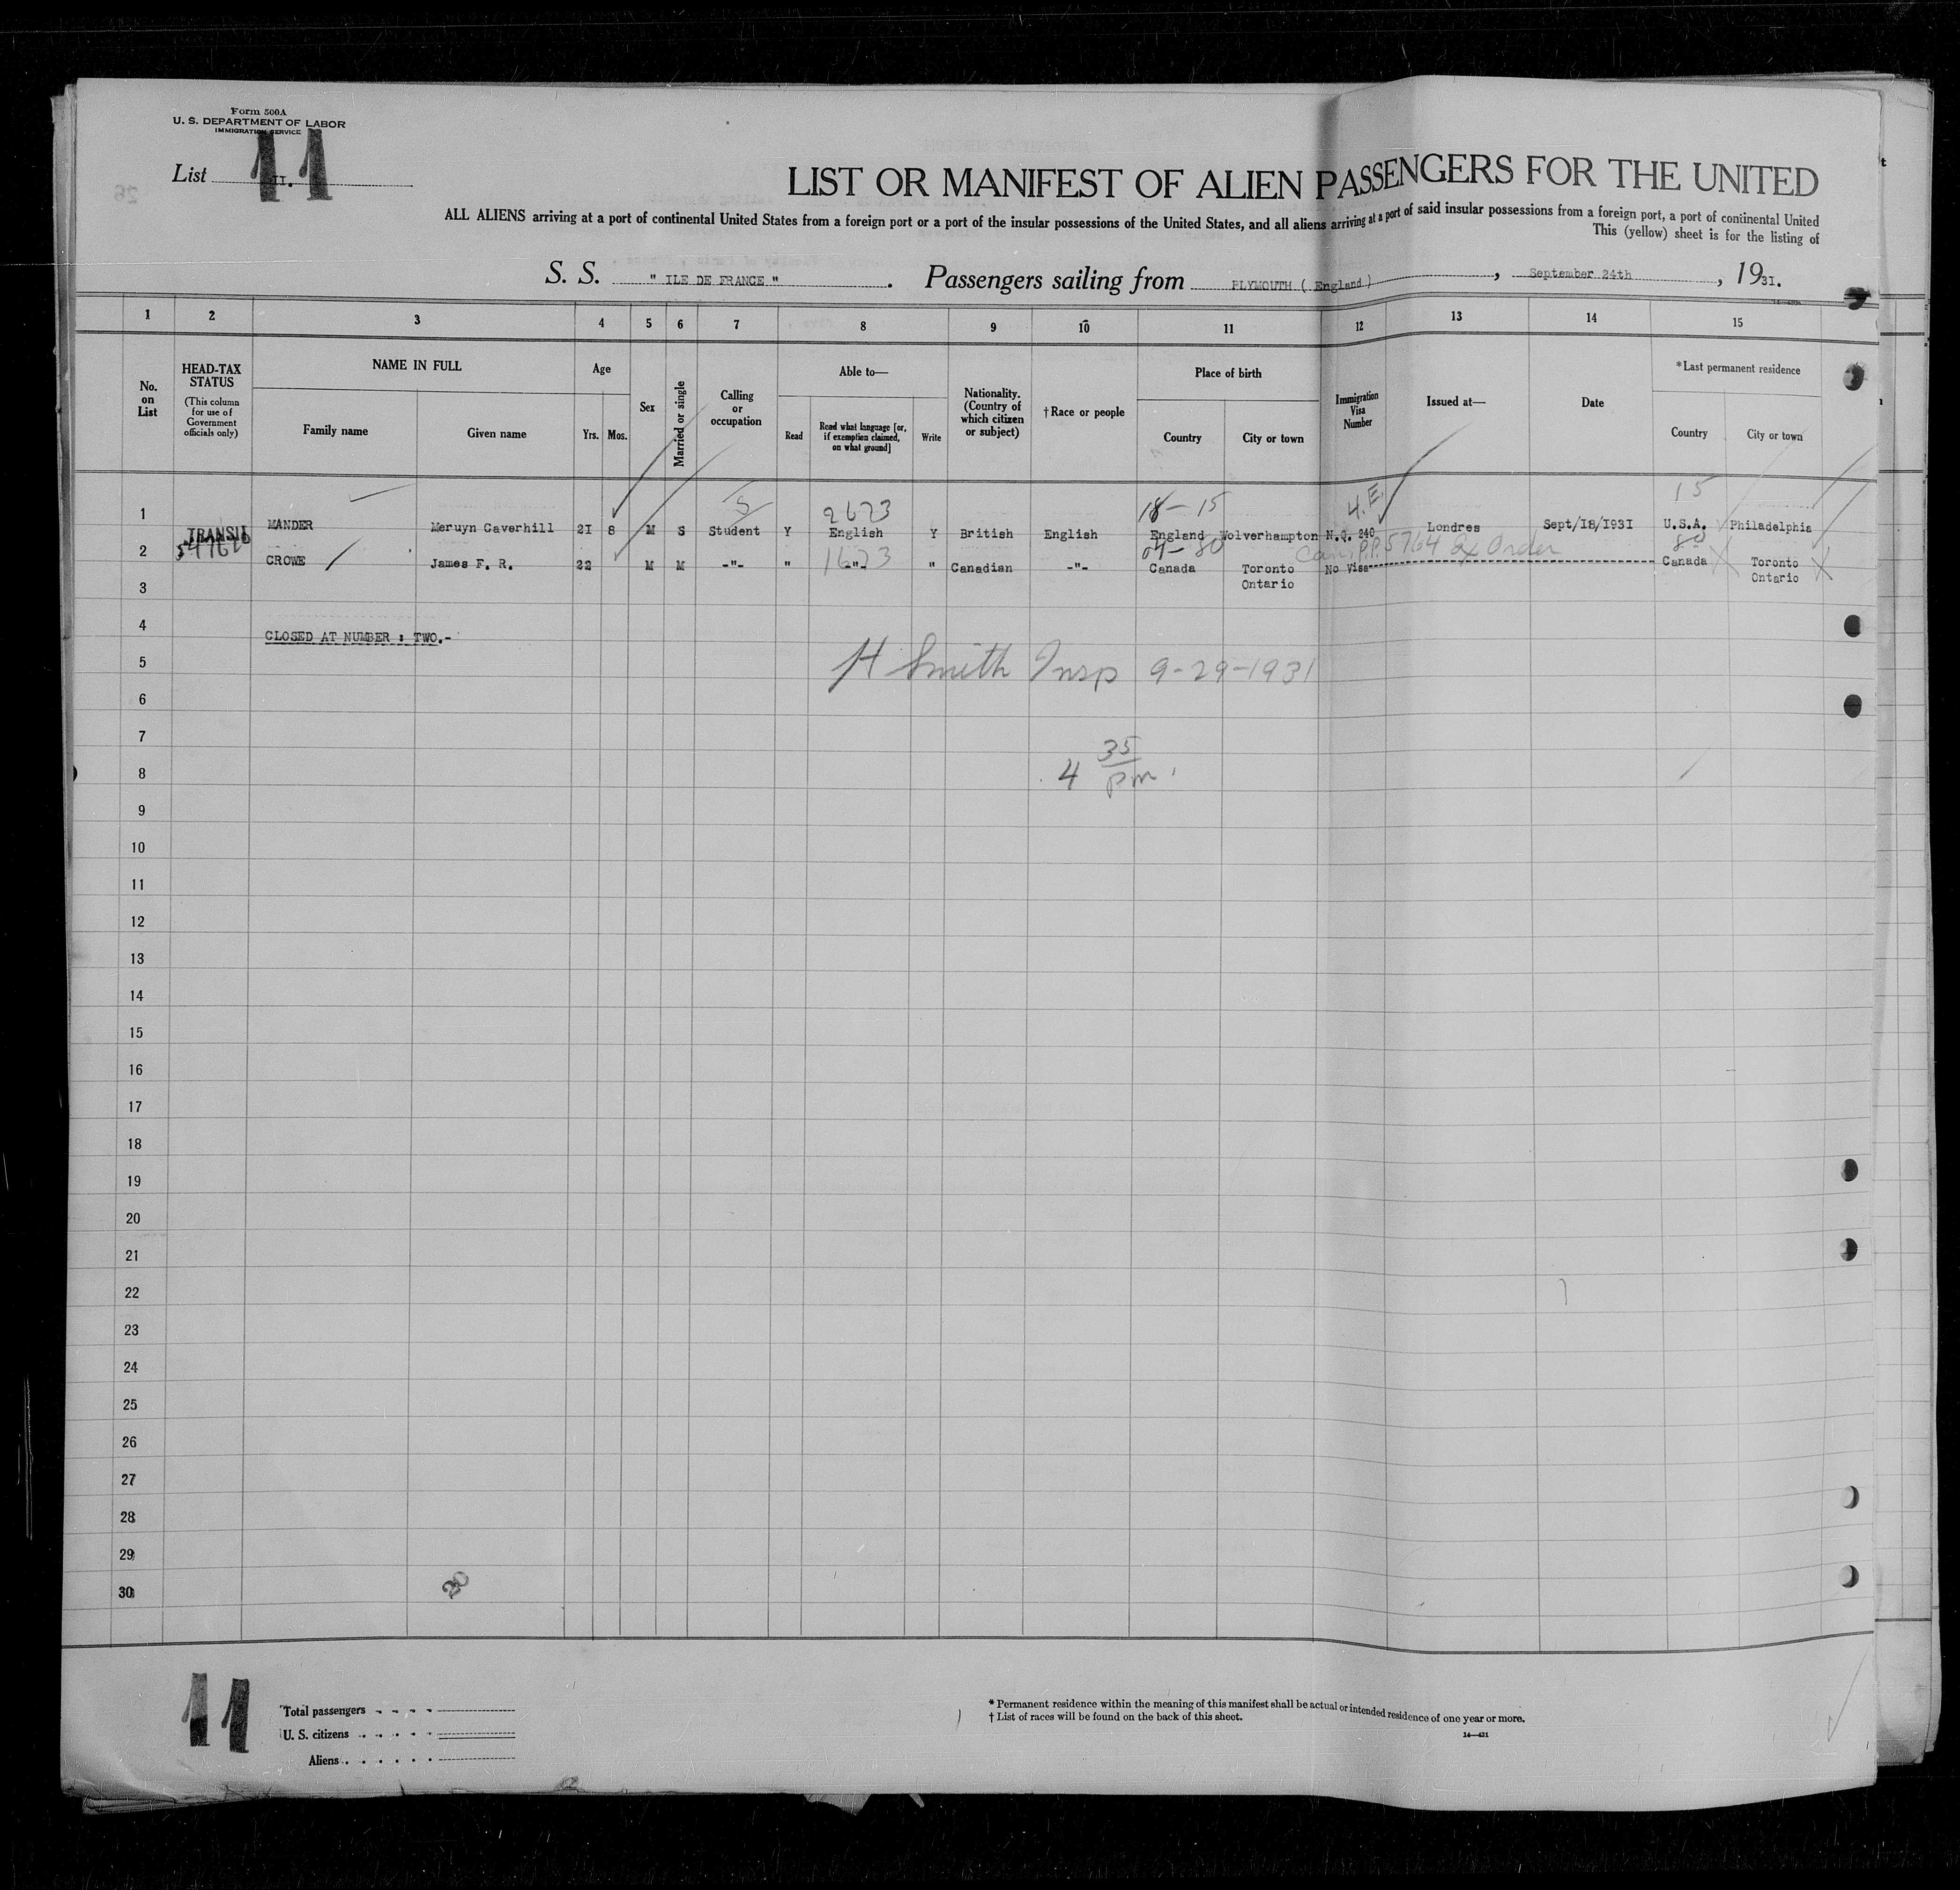 Form 500A
U. S. DEPARTMENT OF LABOR
IMMIGRATION SERVICE
List II. 11
LIST OR MANIFEST OF ALIEN PASSENGERS FOR THE UNITED
ALL ALIENS arriving at a port of continental United States from a foreign port or a port of the insular possessions of the United States, and all aliens arriving at a port of said insular possessions from a foreign port, a port of continental United
This (yellow) sheet is for the listing of
S. S. " ILE DE FRANCE ". Passengers sailing from PLYMOUTH ( England ), September 24th, 1931.
1 2 3 4 5 6 7 8 9 10 11 12 13 14 15
No. on List
HEAD-TAX STATUS (This column for use of Government officials only)
NAME IN FULL
Family name Given name
Age
Yrs. Mos.
Sex
Married or single
Calling or occupation
Able to—
Read
Read what language [or, if exemption claimed, on what ground]
Write
Nationality. (Country of which citizen or subject)
†Race or people
Place of birth
Country City or town
Immigration Visa Number
Issued at—
Date
*Last permanent residence
Country City or town
S 2673 18-15 4.E. 15
1 MANDER Meruyn Caverhill 21 8 M S Student Y English Y British English England Wolverhampton N.Q. 240 Londres Sept/18/1931 U.S.A. Philadelphia
TRANSIT
1673 04-80 Can. P.P. 5764 Ex Order 80
2 CROWE James F. R. 22 M M -"- " -"- " Canadian -"- Canada Toronto Ontario No Visa Canada Toronto Ontario
3
4 CLOSED AT NUMBER : TWO.-
5 H Smith Insp 9-29-1931
6
7
8 4 35 pm
9
10
11
12
13
14
15
16
17
18
19
20
21
22
23
24
25
26
27
28
29
30
20
11
Total passengers
U. S. citizens
Aliens
* Permanent residence within the meaning of this manifest shall be actual or intended residence of one year or more.
† List of races will be found on the back of this sheet.
14—431